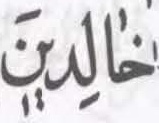 خَالِدينَ